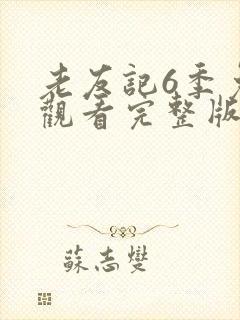 老友記6季
觀看完整版
蘇志燮